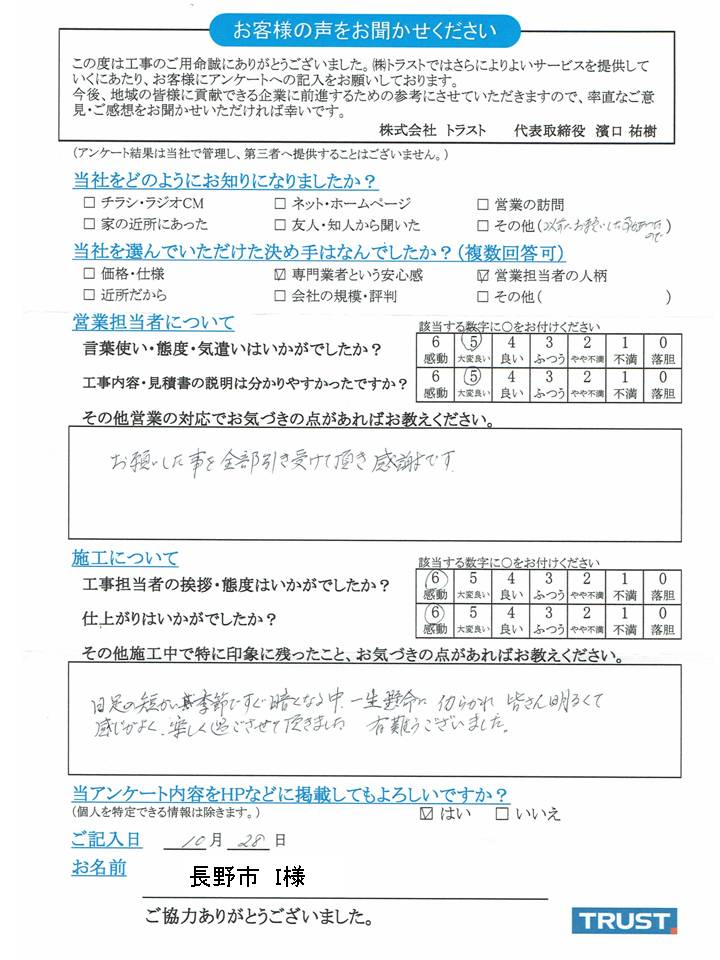 お客様の声をお聞かせください
この度は工事のご用命誠にありがとうございました。㈱トラストではさらによりよいサービスを提供して
いくにあたり、お客様にアンケートへの記入をお願いしております。
今後、地域の皆様に貢献できる企業に前進するための参考にさせていただきますので、率直なご意
見・ご感想をお聞かせいただければ幸いです。
株式会社 トラスト 代表取締役 濱口 祐樹
(アンケート結果は当社で管理し、第三者へ提供することはございません。)
当社をどのようにお知りになりましたか?
□ チラシ・ラジオCM □ ネット・ホームページ □ 営業の訪問
□ 家の近所にあった □ 友人・知人から聞いた □ その他(以前にお願いした事があった
ので)
当社を選んでいただけた決め手はなんでしたか?(複数回答可)
□ 価格・仕様 ☑ 専門業者という安心感 ☑ 営業担当者の人柄
□ 近所だから □ 会社の規模・評判 □ その他( )
営業担当者について 該当する数字に○をお付けください
言葉使い・態度・気遣いはいかがでしたか? 6 ⑤ 4 3 2 1 0
感動 大変良い 良い ふつう やや不満 不満 落胆
工事内容・見積書の説明は分かりやすかったですか? 6 ⑤ 4 3 2 1 0
感動 大変良い 良い ふつう やや不満 不満 落胆
その他営業の対応でお気づきの点があればお教えください。
お願いした事を全部引き受けて頂き感謝です。
施工について 該当する数字に○をお付けください
工事担当者の挨拶・態度はいかがでしたか? ⑥ 5 4 3 2 1 0
感動 大変良い 良い ふつう やや不満 不満 落胆
仕上がりはいかがでしたか? ⑥ 5 4 3 2 1 0
感動 大変良い 良い ふつう やや不満 不満 落胆
その他施工中で特に印象に残ったこと、お気づきの点があればお教えください。
日足の短かい季節ですぐ暗くなる中、一生懸命に 仂らかれ 皆さん明るくて
感じがよく、楽しく過ごさせて頂きました 有難うございました。
当アンケート内容をHPなどに掲載してもよろしいですか?
(個人を特定できる情報は除きます。) ☑ はい □ いいえ
ご記入日 10 月 28 日
お名前 長野市 I様
ご協力ありがとうございました。
TRUST.